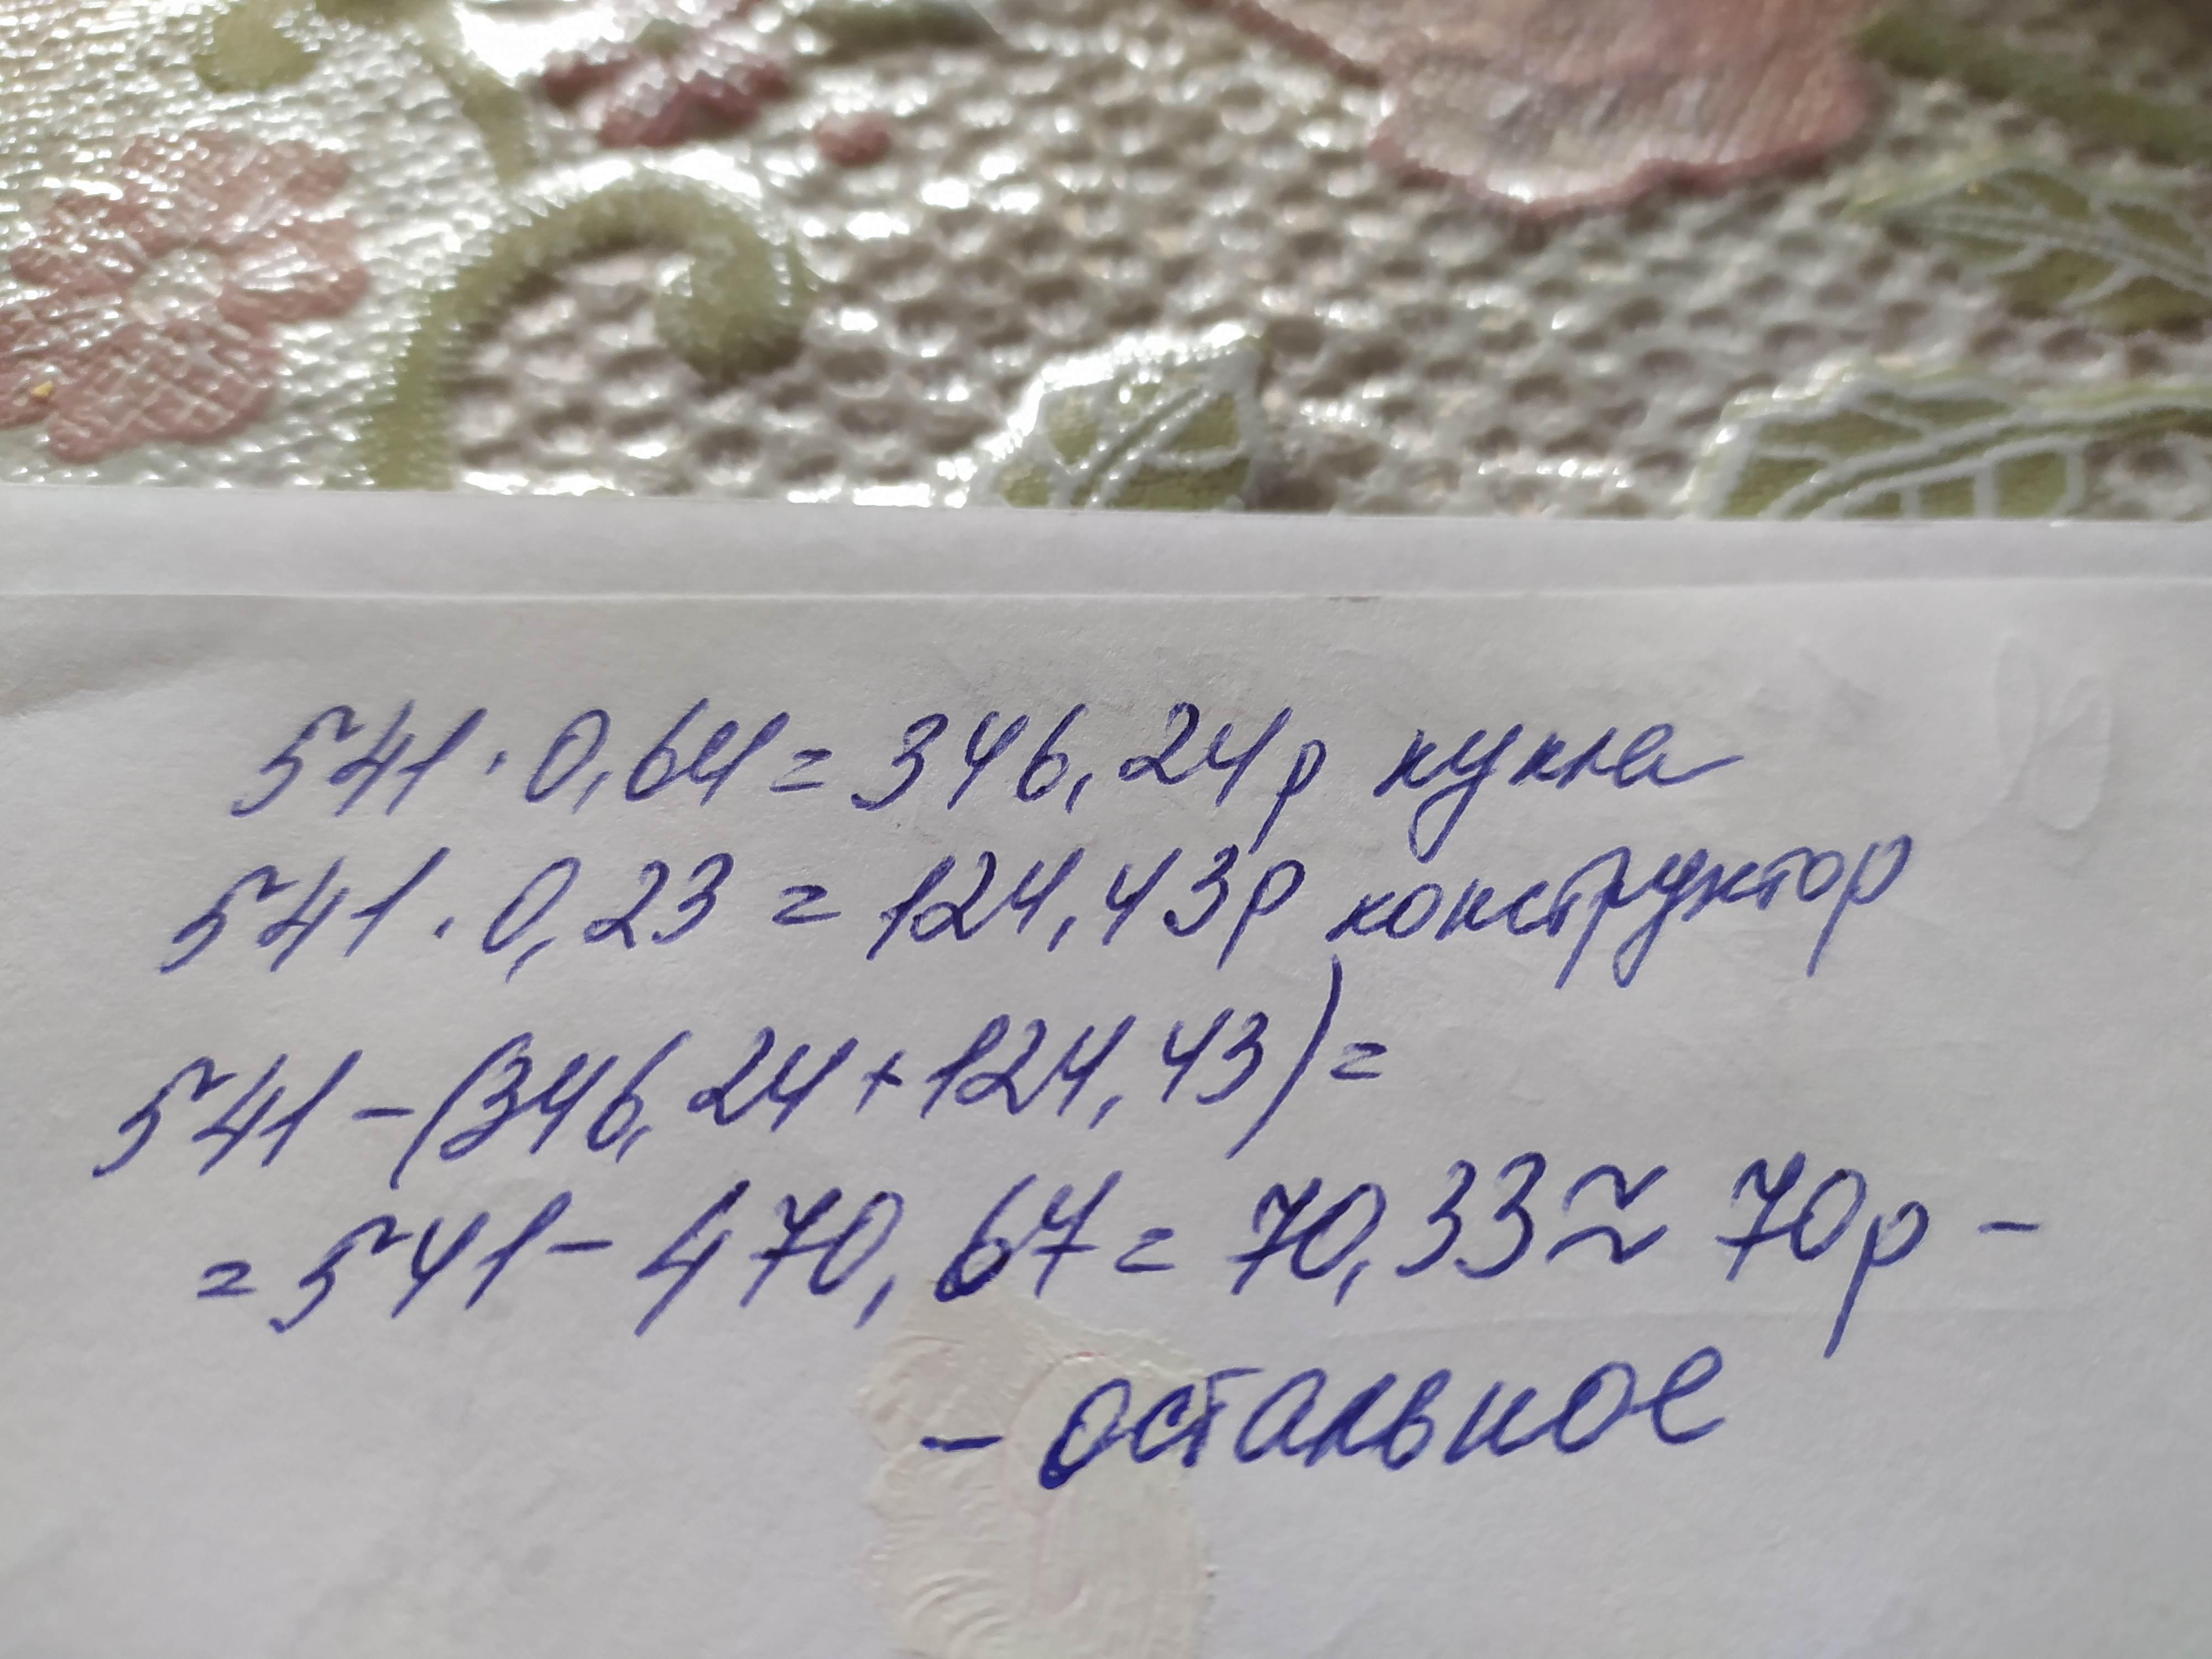 541 · 0,64 = 346,24р кукла
541 . 0,23 = 124,43р конструктор
541 - (346,24 + 124,43) =
= 541 - 470,67 = 70,33 ≈ 70р -
- остальное